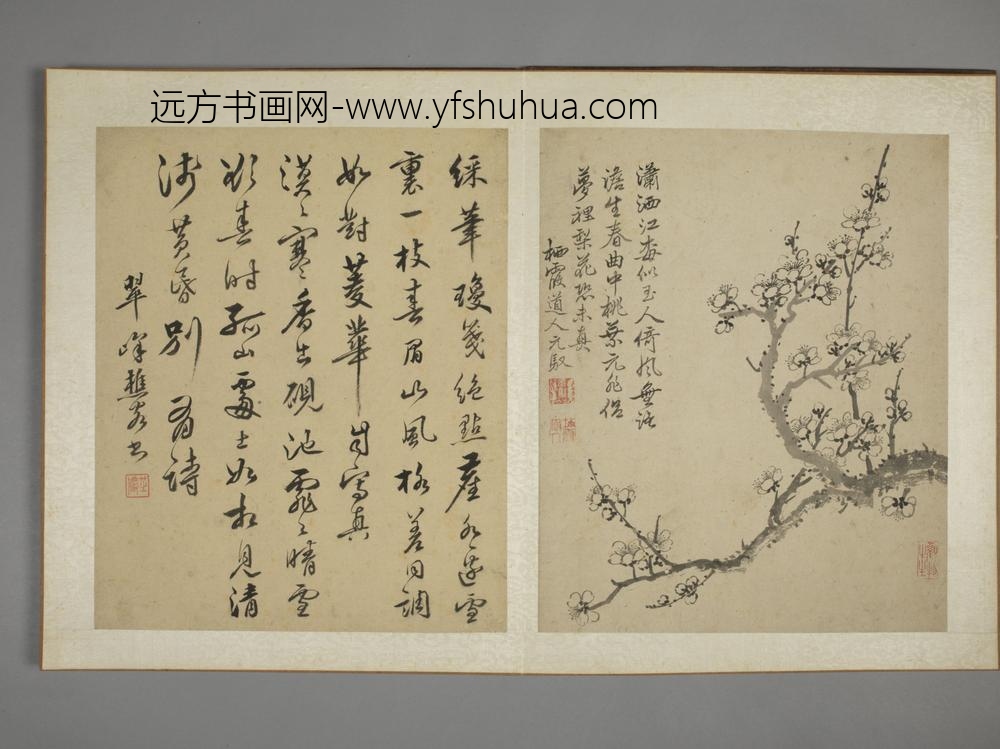 远方书画网-www.yfshuhua.com
瀟洒江梅似玉人倚風無語
澹生春曲中桃葉元非侶
夢裡梨花恐未真
栖霞道人元馭
綵筆瓊箋絕點塵水邊雪
裏一枝春眉山風格差同調
如對菱華自寫真
漠〻寒香出硯池霏〻晴雪
欲春時孤山處士如相見清
淺黃昏別有詩
翠峰樵客書